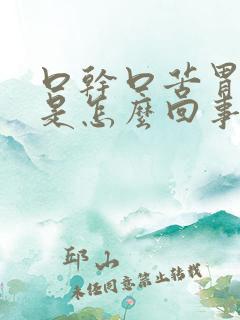 口幹口苦胃
是怎麼回事
邱山
未经同意禁止转载